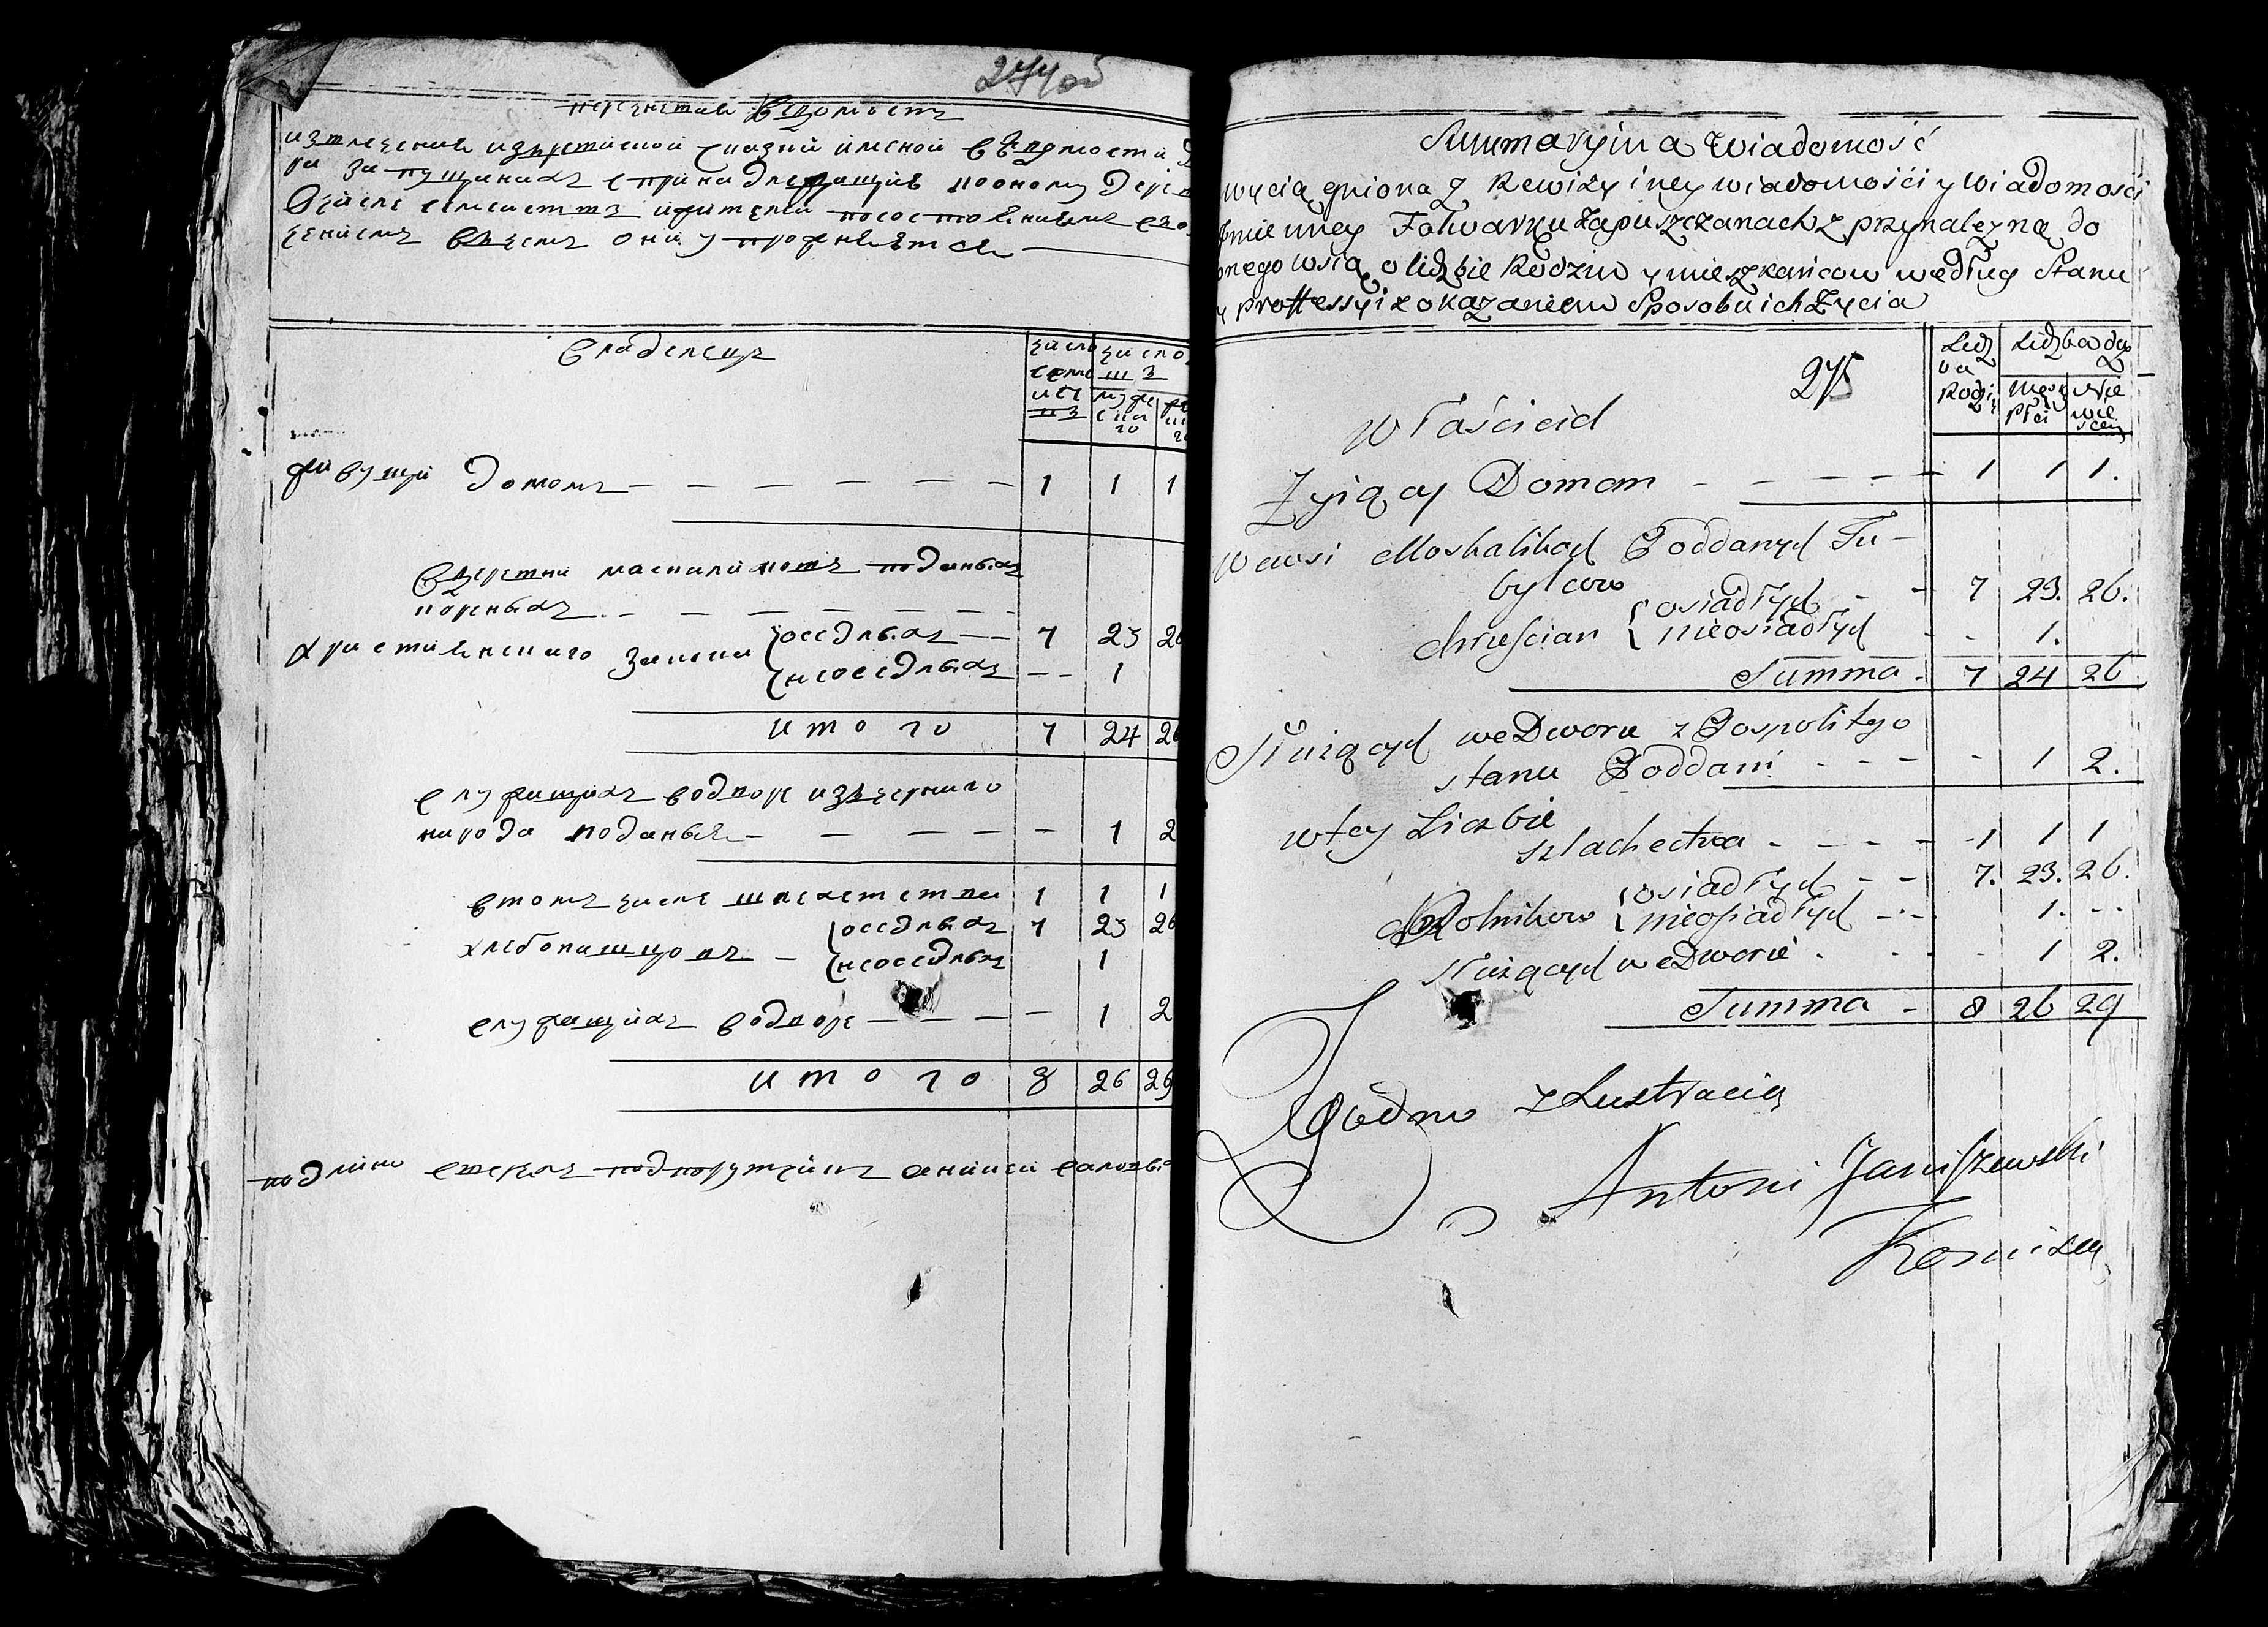 274 об
перечнтвая Ведомость
извлеченная изревизской сказки именой ведомости
ра Запущанахъ спринадлежащив кооному Дерев
Очисле семействъ ижителеи посостоянниямъ
чениемъ вчемъ они упрожняются
Владелецъ
число семе иств
число
ш
мужескаго
живущи Домомъ — — — — — — 1 1 1
Вдеревни москаликовъ поданыхъ
кореныхъ — — — — — —
Християнскаго Закона оседлыхъ — 7 23 26
неоседлыхъ — — 1
итого 7 24 26
служащихъ водворе изчернаго
народа поданыя — — — — — 1 2
втомъ числе шляхетства 1 1 1
хлебопашцовъ — оседлыхъ 7 23 26
неоседлых 1
служащихъ водворе — — — — 1 2
итого 8 26 29
подлино
Summaryjna Wiadomość
wyciągniona z Rewizyiney wiadomości y Wiadomosci
Imienney Folwarku Zapuszczanach z przynalezną do
onego Wsią o lidzbie Rodzin y mieszkańcow według Stanu
y proffessyi z okazaniem Sposobu ich Zycia
275
Lidzba Rodzin
Lidzba dusz
męskiey płci
Niewiesciey
Właściciel
Zyiący Domem - - - - 1 1 1.
We wsi Moskalikach Poddanych Tu-
bylcow
chrześcian osiadłych - - 7 23. 26.
nieosiadłych - - 1.
Summa - 7 24 26
Służących we Dworu z Pospolitego
stanu Poddani - - - - 1 2.
w tey Liczbie
szlachectwa - - - - 1 1 1
Rolnikow osiadłych - - 7. 23. 26.
nieosiadłych - - - 1. - -
Służących we Dworie - - - 1 2.
Summa - 8 26 29
Zgodno z Lustracią
Antoni Janiszewski